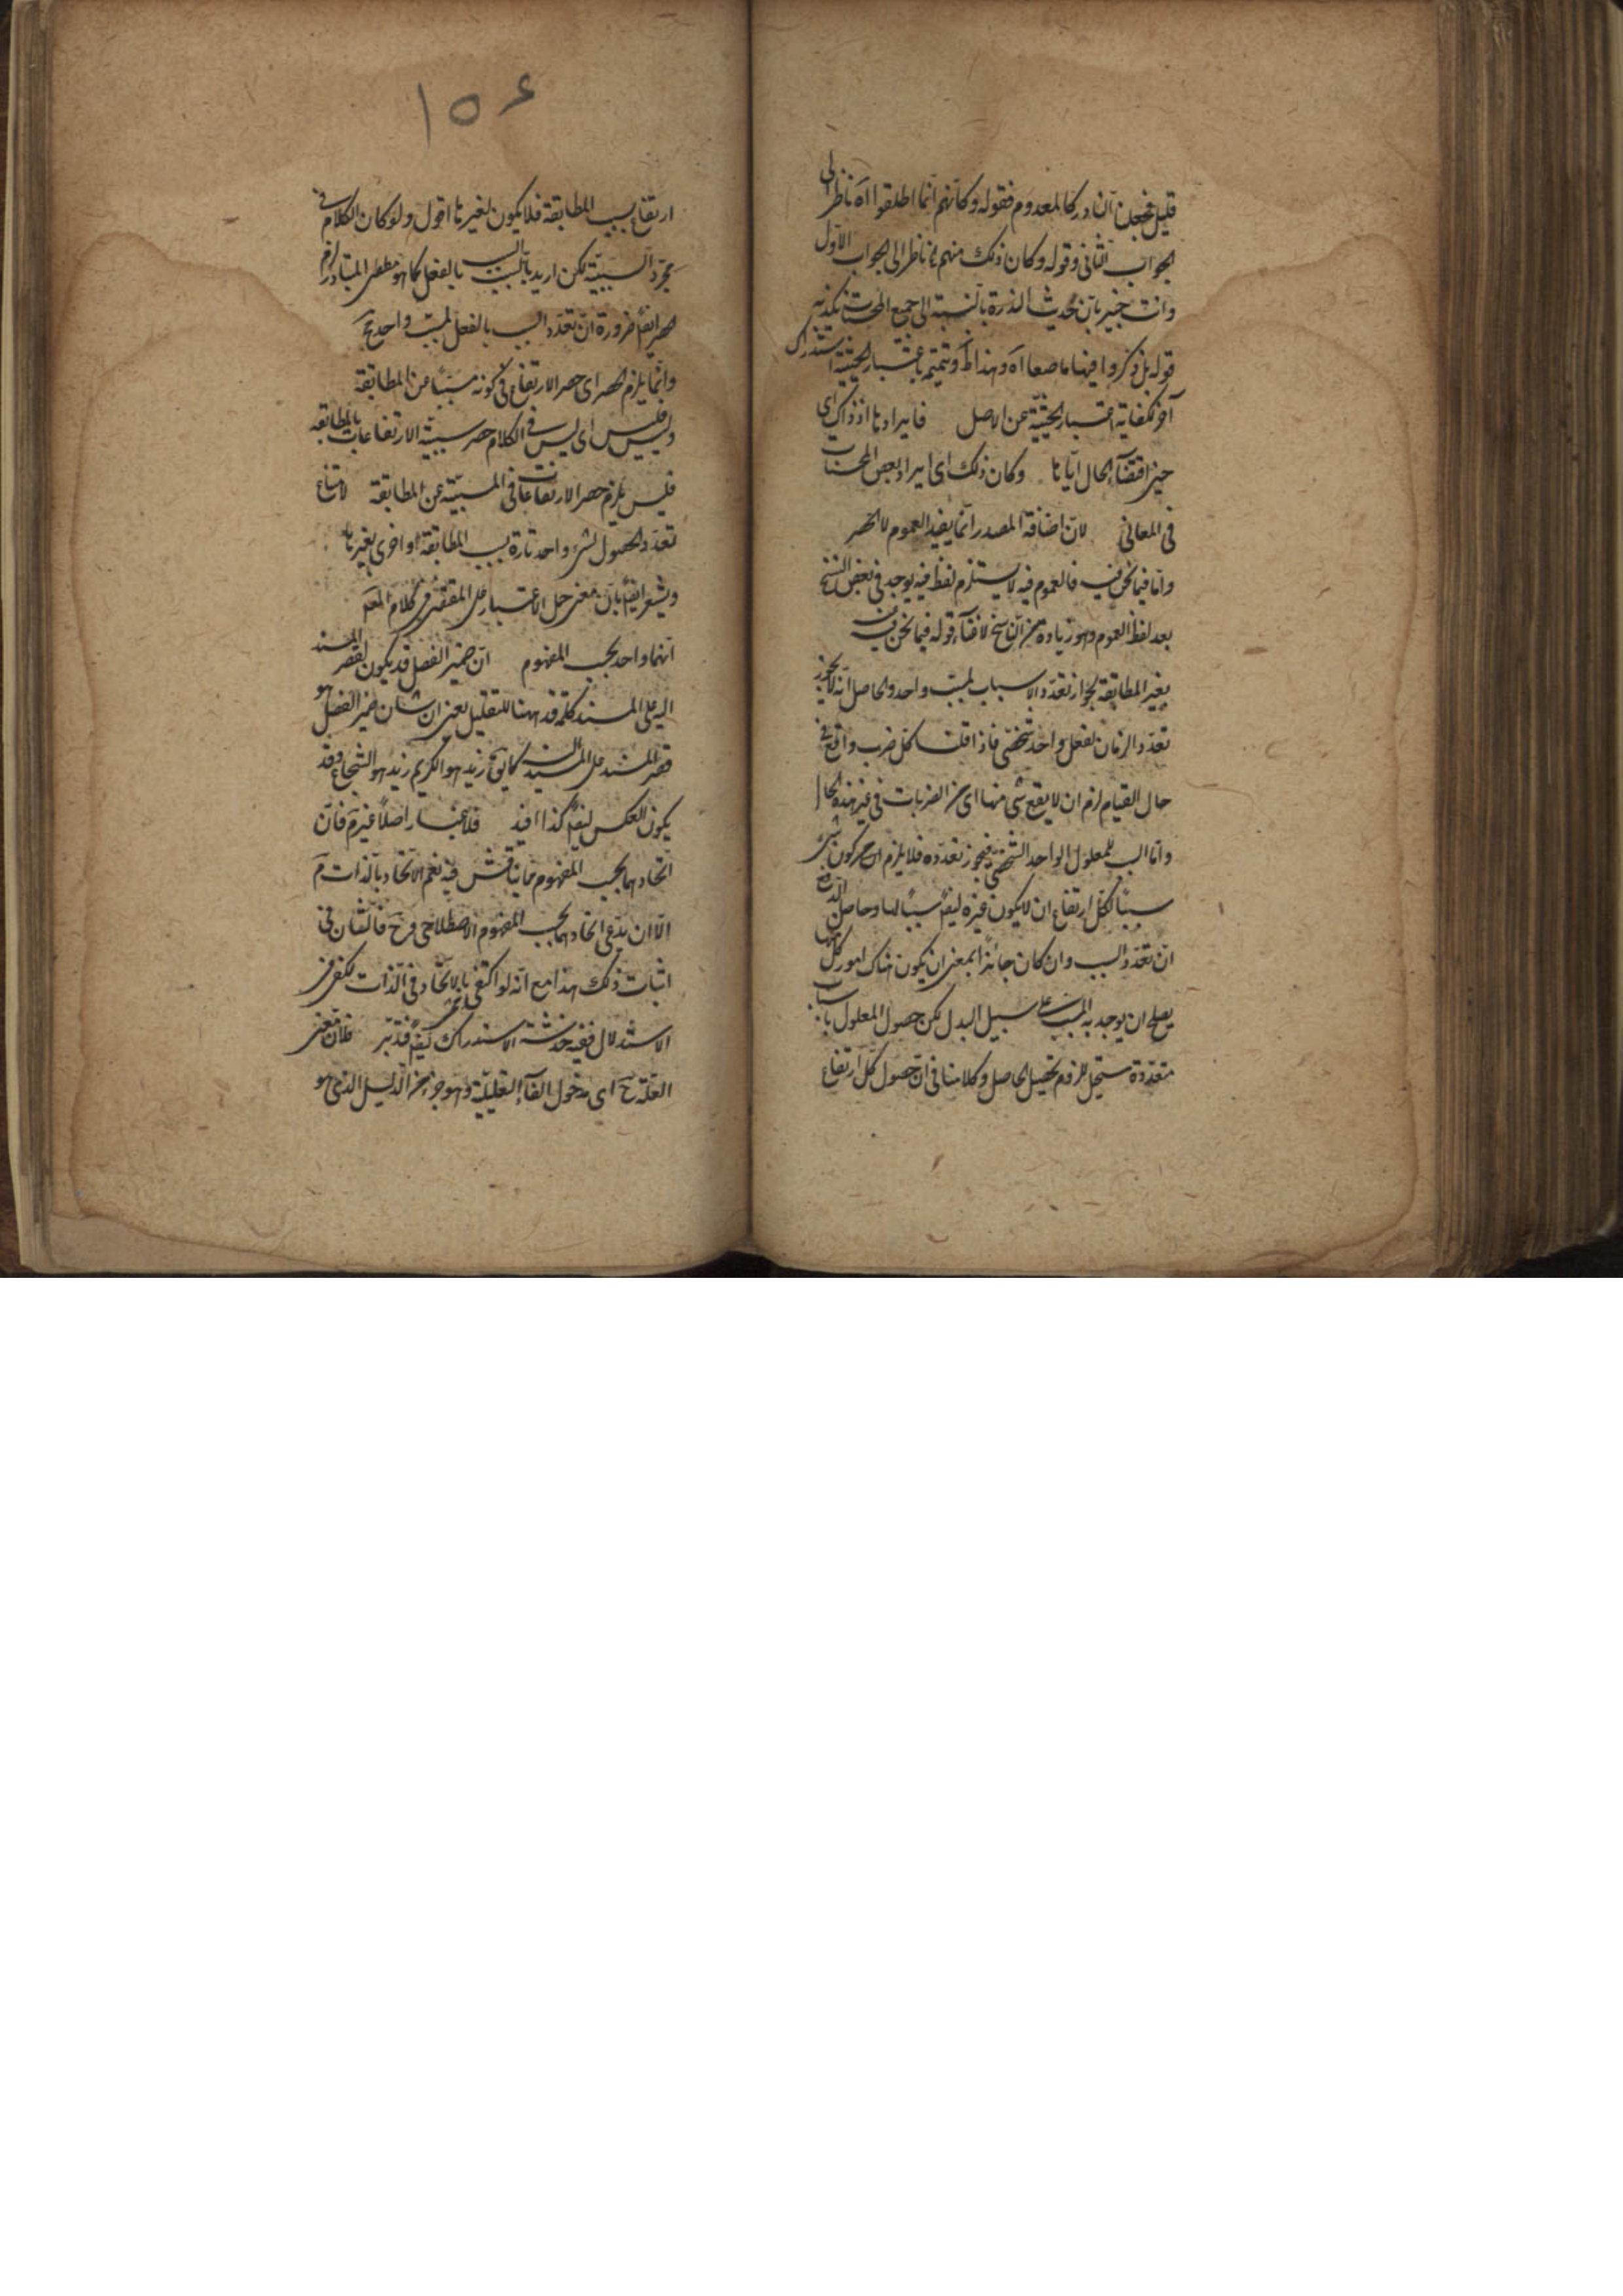 قليل فجعلن النادر كالمعدوم فقوله وكانهم انما اطلقوا اه ناظر الى
الجواب الثاني وقوله وكان ذلك منهم ناظر الى الجواب الاول
وانت خبير بان حديث الندرة بالنسبة الى جميع المحسنات
قوله بل ذكروا فيها ما صعا اه وهذا وتتميم باعتبار الحيثية استدراك
آخر لكفاية اعتبار الحيثية عن الاصل فايرادها اذ ذاك اى
حين اقتضاء الحال اياها وكان ذلك اى ايراد بعض المحسنات
في المعاني لان اضافة المصدر انما يفيد العموم لا الحصر
واما فيما نحن فيه فالعموم فيه لا يستلزم لفظ فيه يوجد في بعض النسخ
بعد لفظ العموم وهو زيادة من الناسخ لاقتضاء قوله فيما نحن فيه
بغير المطابقة لجواز تعدد الاسباب لمسبب واحد والحاصل انه لا يجوز
تعدد الزمان لفعل واحد شخصي فاذا قلت كل ضرب واقع في
حال القيام لزم ان لا يقع شي منها اى من الضربات في غير هذه الحال
واما السبب للمعلول الواحد الشخصي فيجوز تعدده فلا يلزم من كون شئ
سببا لكل ارتفاع ان لا يكون غيره ايضا سببا لها وحاصل الدفع
ان تعدد السبب وان كان جائزا بمعنى ان يكون هناك امور كل منها
يصلح ان يوجد به المسبب على سبيل البدل لكن حصول المعلول باسباب
متعددة مستحيل للزوم تحصيل الحاصل وكلامنا في ان حصول كل ارتفاع
١٥٤
ارتفاع بسبب المطابقة فلا يكون لغيرها اقول ولو كان الكلام في
مجرد السببية لكن اريد بالسبب السبب بالفعل كما هو مقتضى المتبادر لزم
الحصر ايضا ضرورة ان تعدد السبب بالفعل لمسبب واحد مح
وانما يلزم الحصر اى حصر الارتفاع في كونه مسببا من المطابقة
وليس فليس اى ليس في الكلام حصر سببية الارتفاعات بالمطابقة
فليس يلزم حصر الارتفاعات في المسببية عن المطابقة لامتناع
تعدد الحصول لشئ واحد تارة بسبب المطابقة او اخرى بغيرها
ويشعر ايضا بان معنى حمل الاعتبار على المقتضى في كلام المص
انهما واحد بحسب المفهوم ان ضمير الفصل قد يكون لقصر المسند
اليه على المسند كلمة قد ههنا للتقليل يعنى ان شان ضمير الفصل هو
قصر المسند على المسند اليه كما يق زيد هو الكريم زيد هو الشجاع وقد
يكون للعكس ايضا كذا افيد فلا غبار اصلا غيرم فان
اتحادهما بحسب المفهوم مما يناقش فيه نعم الاتحاد بالذات م
الا ان يدعى اتحادهما بحسب المفهوم الاصطلاحي فرضح فالشان في
اثبات ذلك هذا مع انه لو اكتفى بالاتحاد في الذات يكفى في
الاستدلال ففيه خدشة الاستدراك ايضا فتدبر فلان معنى
العلة ح اى مدخول الفاء التعليلية وهو جزء من الدليل الذي هو